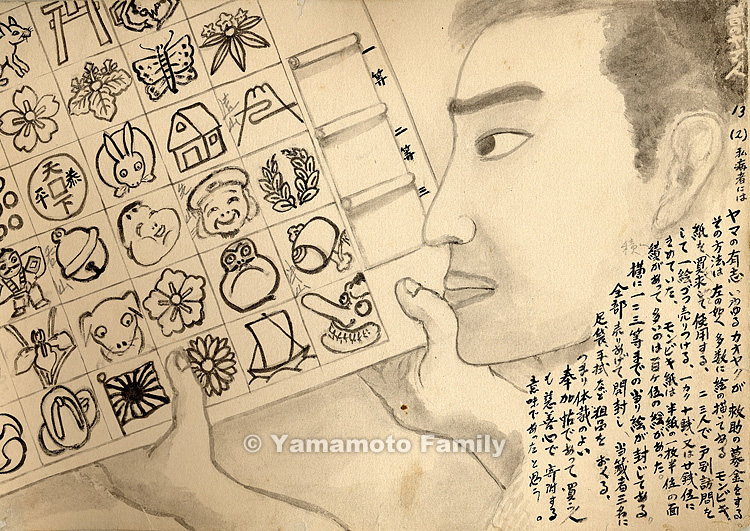 13
(2)
ヤマの有志いわゆるカオヤクが救助の募金をする
その方法は左の如く多数に絵の描てあるモンビキ
紙を買求して使用する。二三人で戸別訪問を
して一絵づつ売りつける、カケ十銭又は廿銭位に
きめていた、モンビキ紙は半紙の一枚半位の面
積があって多いのは百ケ位の絵があった。
横に一二三等までの当り絵が封じてある。
全部売りあげて開封し当籤者三名に
足袋、手拭など粗品をおくる。
つまり体裁のよい
奉加帖であって買う人
も慈善心で寄附する
意味であったと思う。
一等
二等
三
天下泰平
© Yamamoto Family